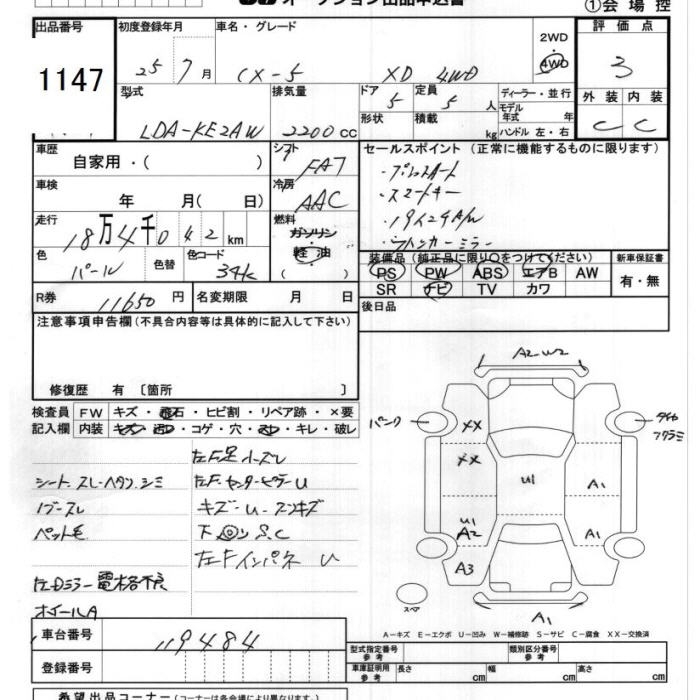 オークション出品申込書
①会場控
出品番号 初度登録年月 車名・グレード 2WD 評価点
1147 25年7月 CX-5 XD 4WD 4WD 3
型式 排気量 ドア 定員 ディーラー・並行 外装 内装
LDA-KE2AW 2200cc 5 5人 モデル年式 年 C C
形状 積載 kg ハンドル 左・右
車歴 シフト セールスポイント (正常に機能するものに限ります)
自家用・( ) FA7 ・プッシュスタート
車検 冷房 ・スマートキー
年 月(日) AAC ・19インチA/W
走行 燃料 ・ウインカーミラー
18万4千042km ガソリン・軽油( )
色 色替 色コード 装備品 (純正品に限り○をつけてください) 新車保証書
パール 34K PS PW ABS エアB AW 有・無
SR ナビ TV カワ
R券 11650円 名変期限 月 日 後日品
注意事項申告欄(不具合内容等は具体的に記入して下さい)
修復歴 有 〔箇所 〕
検査員 FW キズ・飛石・ヒビ割・リペア跡・×要
記入欄 内装 キズ・コゲ・穴・キレ・破レ
A2-W2
パンク XX タイヤ
XX U1 A1
U1 A2 A1
A3
スペア A1
左F足
シート スレ ヘタリ シミ 左F センターピラーU
ノブスレ キズ・U・スリキズ
ペット毛 下回り S.C
左F インパネ U
左Dミラー電格不良
ホイールA
A-キズ E-エクボ U-凹み W-補修跡 S-サビ C-腐食 XX-交換済
車台番号 119484
型式指定番号 参考 類別区分番号 参考
登録番号 車庫証明用 参考 長さ cm 幅 cm 高さ cm
希望出品コーナー (コーナーは各会場により異なります。)